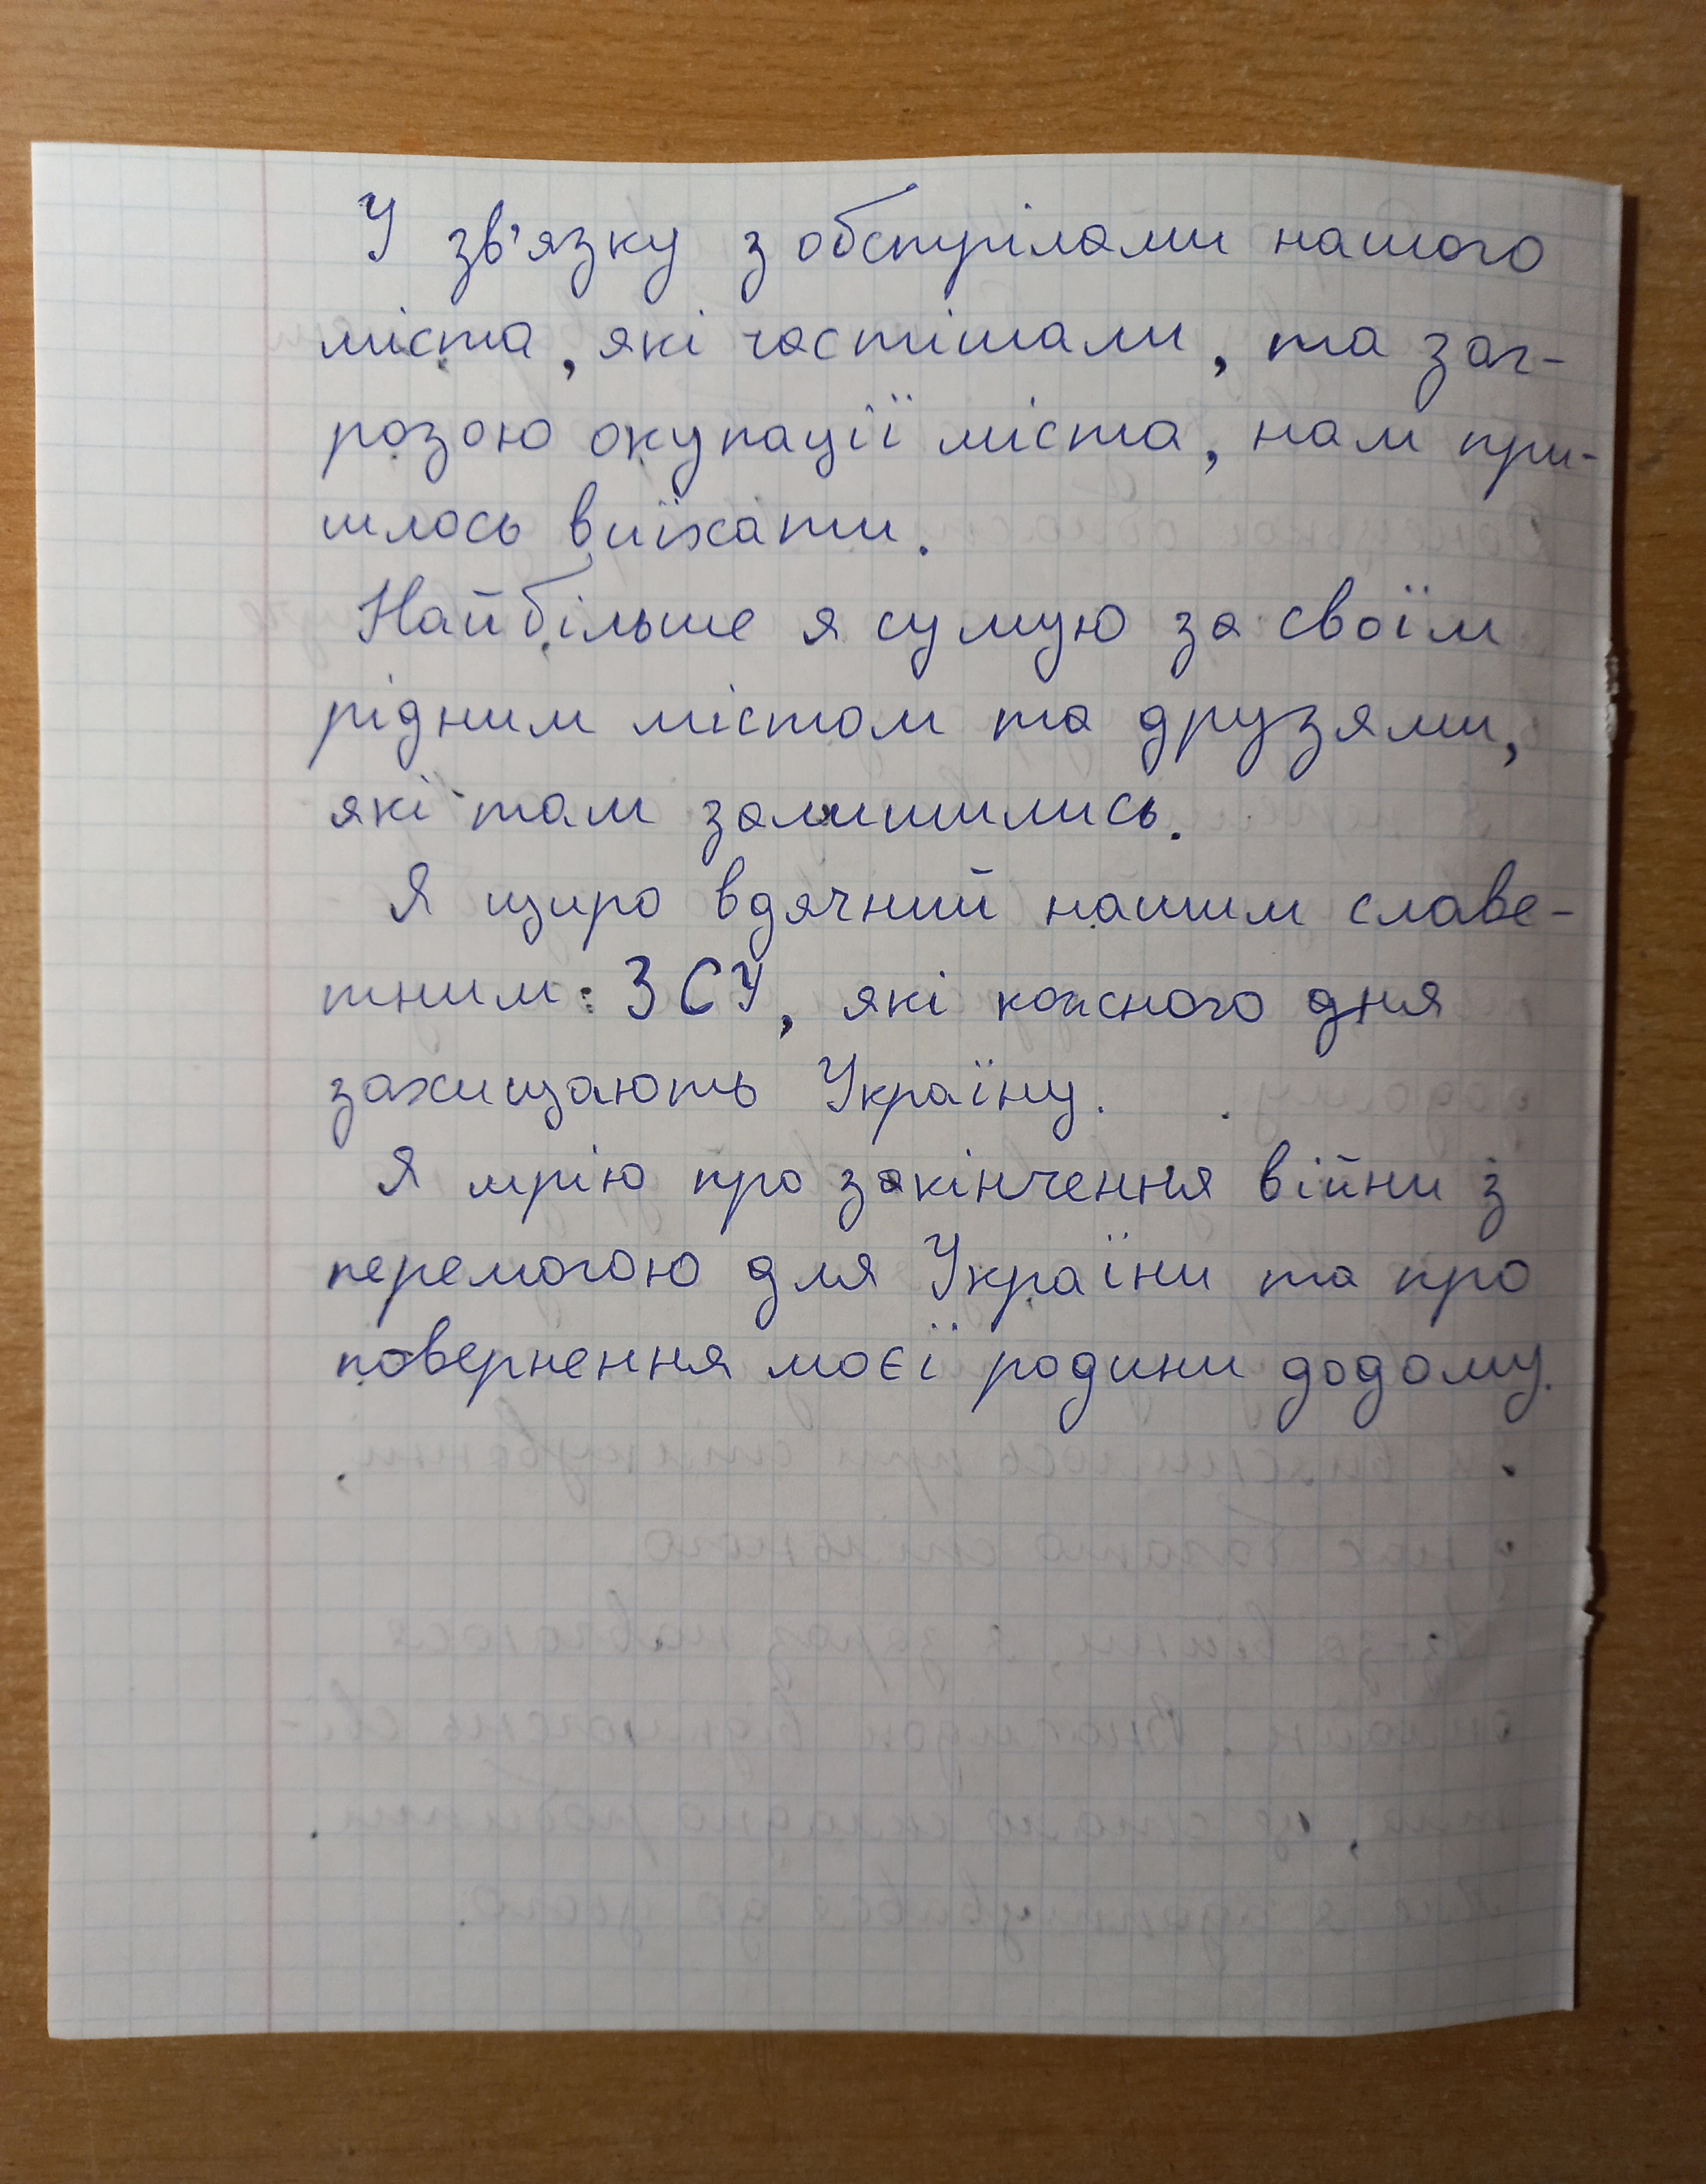 У зв'язку з обстрілами нашого
міста, які частішали, та заг-
розою окупації міста, нам при-
шлось виїхати.
Найбільше я сумую за своїм
рідним містом та друзями,
які там залишились.
Я щиро вдячний нашим славе-
тним ЗСУ, які кожного дня
захищають Україну.
Я мрію про закінчення війни з
перемогою для України та про
повернення моєї родини додому.